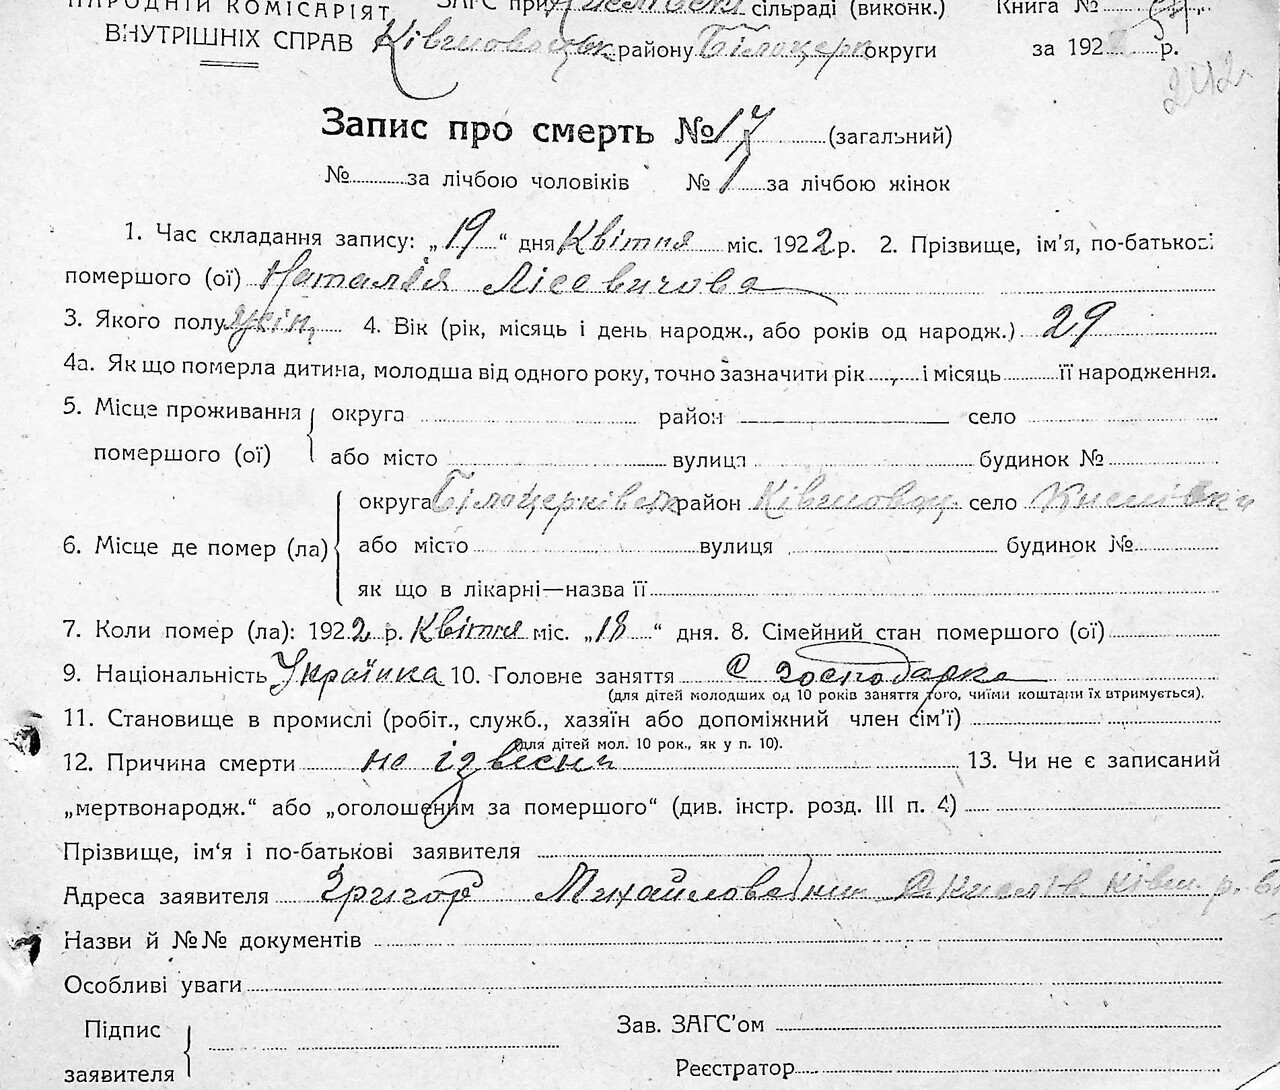 НАРОДНІЙ КОМІСАРІЯТ ЗАГС при сільраді (виконк.) Книга №
ВНУТРІШНІХ СПРАВ району Білоцерк округи за 192 р.
212
Запис про смерть № 17 (загальний)
№ за лічбою чоловіків № 1 за лічбою жінок
1. Час складання запису: „19“ дня Квітня міс. 1922 р. 2. Прізвище, ім’я, по-батькові
помершого (ої) Наталія Лісевичова
3. Якого полу жін, 4. Вік (рік, місяць і день народж., або років од народж.) 29
4а. Як що померла дитина, молодша від одного року, точно зазначити рік і місяць її народження.
5. Місце проживання округа район село
помершого (ої) або місто вулиця будинок №
округа Білоцерківськ район село
6. Місце де помер (ла) або місто вулиця будинок №
як що в лікарні—назва її
7. Коли помер (ла): 1922 р. Квітня міс. „18“ дня. 8. Сімейний стан помершого (ої)
9. Національність Українка 10. Головне заняття С господарка
(для дітей молодших од 10 років заняття того, чиїми коштами їх втримується).
11. Становище в промислі (робіт., служб., хазяїн або допоміжний член сім’ї)
(для дітей мол. 10 рок., як у п. 10).
12. Причина смерти не ізвесни 13. Чи не є записаний
„мертвонародж.“ або „оголошеним за помершого“ (див. інстр. розд. III п. 4)
Прізвище, ім‘я і по-батькові заявителя
Адреса заявителя Григор
Назви й №№ документів
Особливі уваги
Підпис Зав. ЗАГС’ом
заявителя Реєстратор